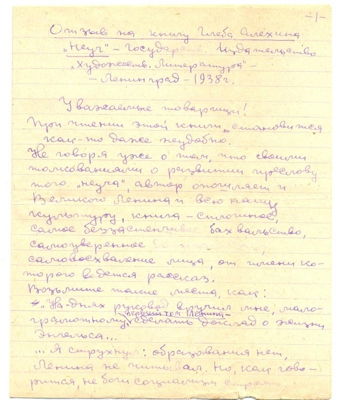 -1-
Отзыв на книгу Глеба Алехина
„Неуч" – Государ. Издательство
„Художеств. Литература" –
– Ленинград – 1938 г.
Уважаемые товарищи!
При чтении этой книги, становится
как-то даже неудобно.
Не говоря уже о том, что своими
толкованиями о развитии пресло-
того „неуча", автор опошляет и
Великого Ленина и всю нашу
культуру, книга – сплошное,
самое беззастенчивое бахвальство,
самоуверенное
самовосхваление лица, от имени ко-
торого ведется рассказ.
Возьмите такие места, как:
„На-днях руковод вручил мне, мало-
грамотному, сделать доклад о жизни
Энгельса...
... Я струхнул: образования нет,
Ленина не читывал. Но, как гово-
рится, не боги социализм